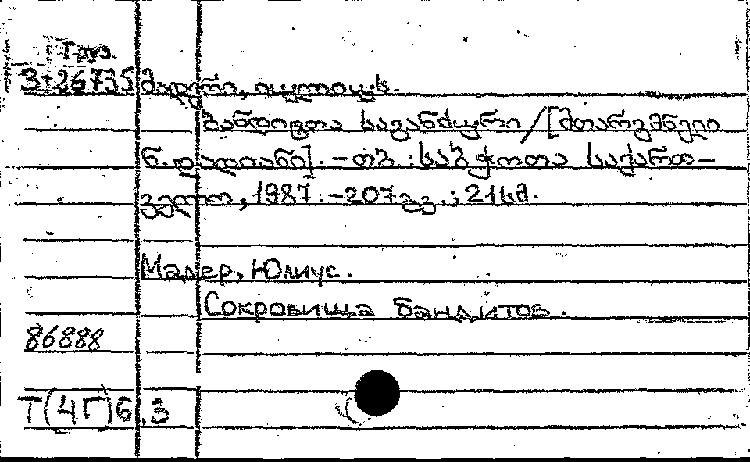 Груз.
3+26735 მადერი, იულიუს.
ბანდიტთა საგანძური / [მთარგმნელი
ნ. დადიანი]. – თბ. : საბჭოთა საქართ–
ველო, 1987. – 207 გვ. ; 21 სმ.
Мадер, Юлиус.
Сокровища бандитов.
86888
Т(4Г)6.3